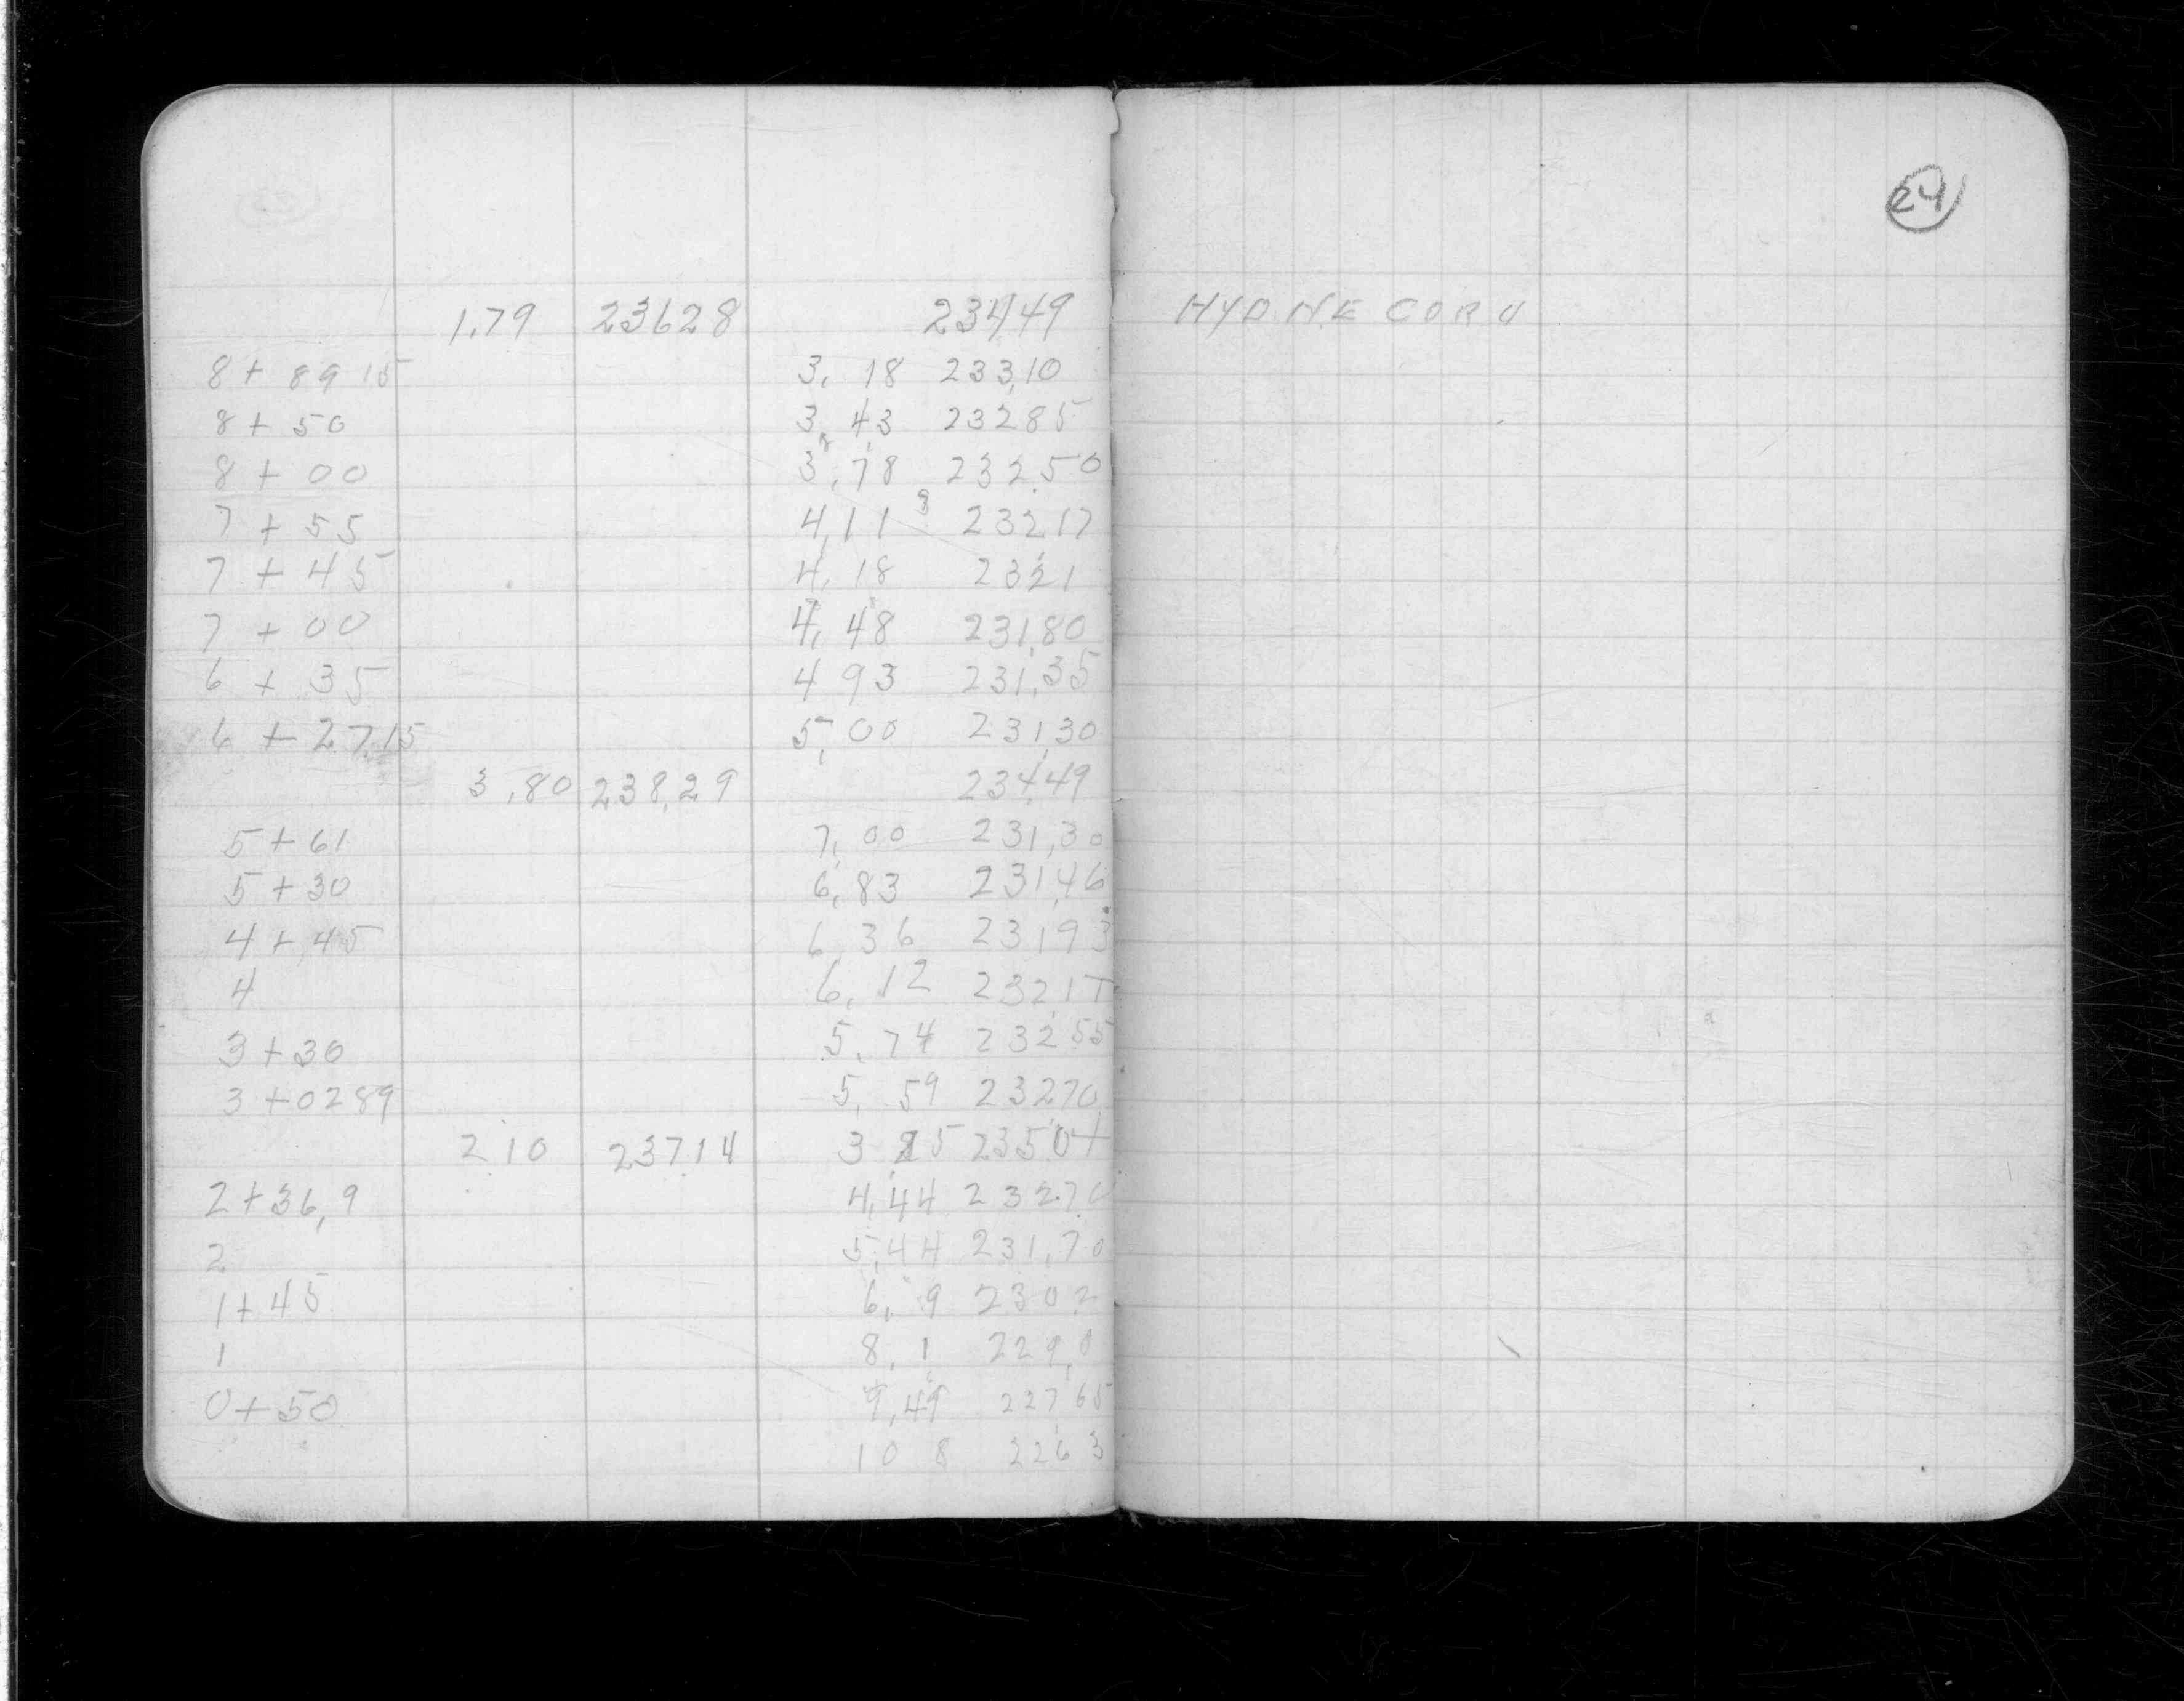 24
1.79 23628 23449 HYD. N.E. COR U
8 + 89 15 3, 18 233,10
8 + 50 3, 43 23285
8 + 00 3,78 232.50
7 + 55 4,11 23217
7 + 45 4, 18 2321
7 + 00 4, 48 231,80
6 + 35 4 93 231,35
6 + 27,15 5, 00 231,30
3,80 238,29 234,49
5 + 61 7, 00 231,30
5 + 30 6,83 231,46
4 + 45 6 36 23193
4 6, 12 23217
3 + 30 5, 74 23255
3 + 0289 5, 59 23270
2 10 237.14 23504
2 + 36,9 4,44 23270
2 5,44 231,70
1 + 45 6, 9 2302
1 8, 1 229,0
0 + 50 9,49 22765
10 8 2263